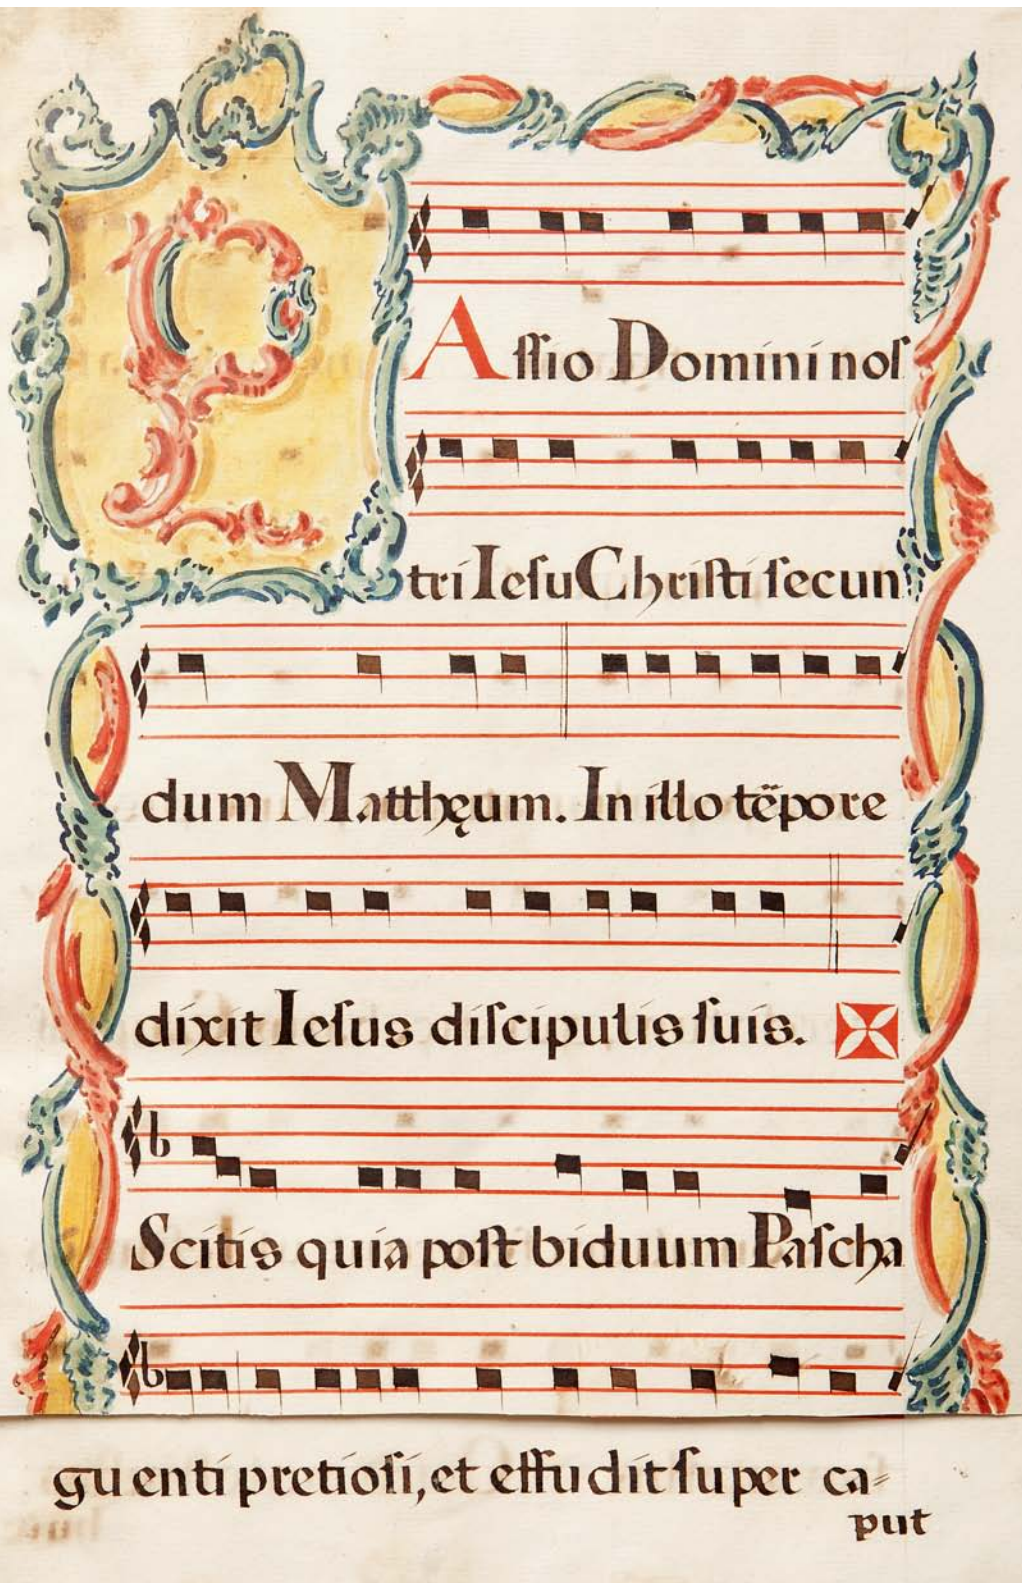 PAſſio Domini noſ
tri Ieſu Chriſti ſecun
dum Matthęum. In illo tẽpore
dixit Ieſus diſcipulis ſuis.
Scitis quia poſt biduum Paſcha
guenti pretioſi, et effudit ſuper ca-
put